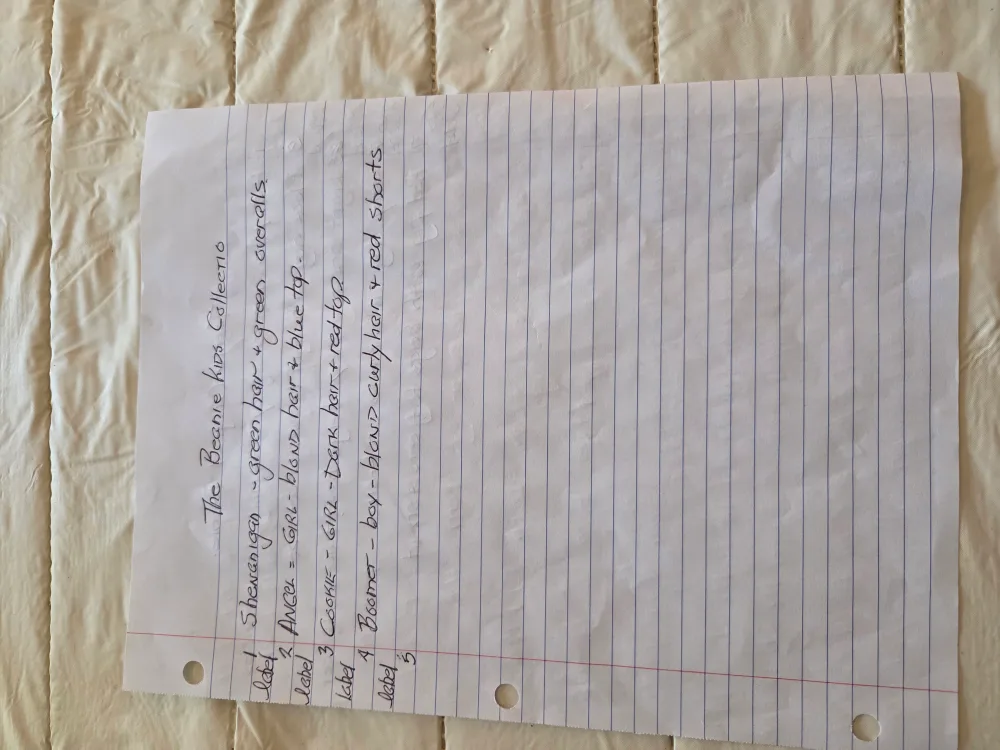 The Beanie Kids Collectio
1 Shenanigan - green hair + green overalls.
label
2 ANGEL = GIRL - blonD hair + blue top.
label
3 COOKIE - GIRL - Dark hair + red top.
label
4 Boomer - boy - blonD curly hair + red shorts
label
5